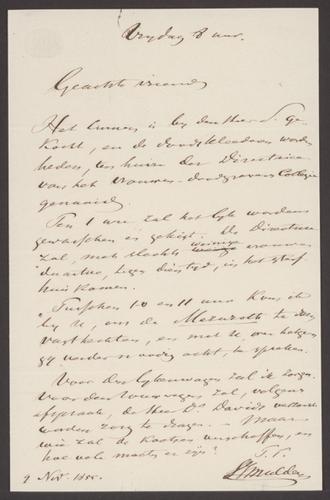 Vrydag 8 uur.
Geachte vriend
Het linnen is by den Heer S. Ge-
kocht, en de doodskleederen worden
heden, ten huize der Directrice
van het vrouwen-doodgravers Collegie
genaaid.
Ten 1 ure zal het lyk worden
gewasschen en gekist. De Directrice
zal, met slechts weinige vrouwen
daartoe, teger dien tyd, in het sterf
huis komen.
Tusschen 10 en 11 uur kom ik
by U, om de Mezuzoth te
vasthechten, en met U, over hetgeen
gy verder noodig acht, te spreken.
Voor den lykenwagen zal ik zorgen.
voor den rouwwagen zal, volgens
afspraak, de Heer Dr. Davids
worden zorg te dragen. - Maar
wie zal de koetsen verschaffen, en
hoe vele moeten er zyn?
T. T.
SMulder
9 Nov. 1855.